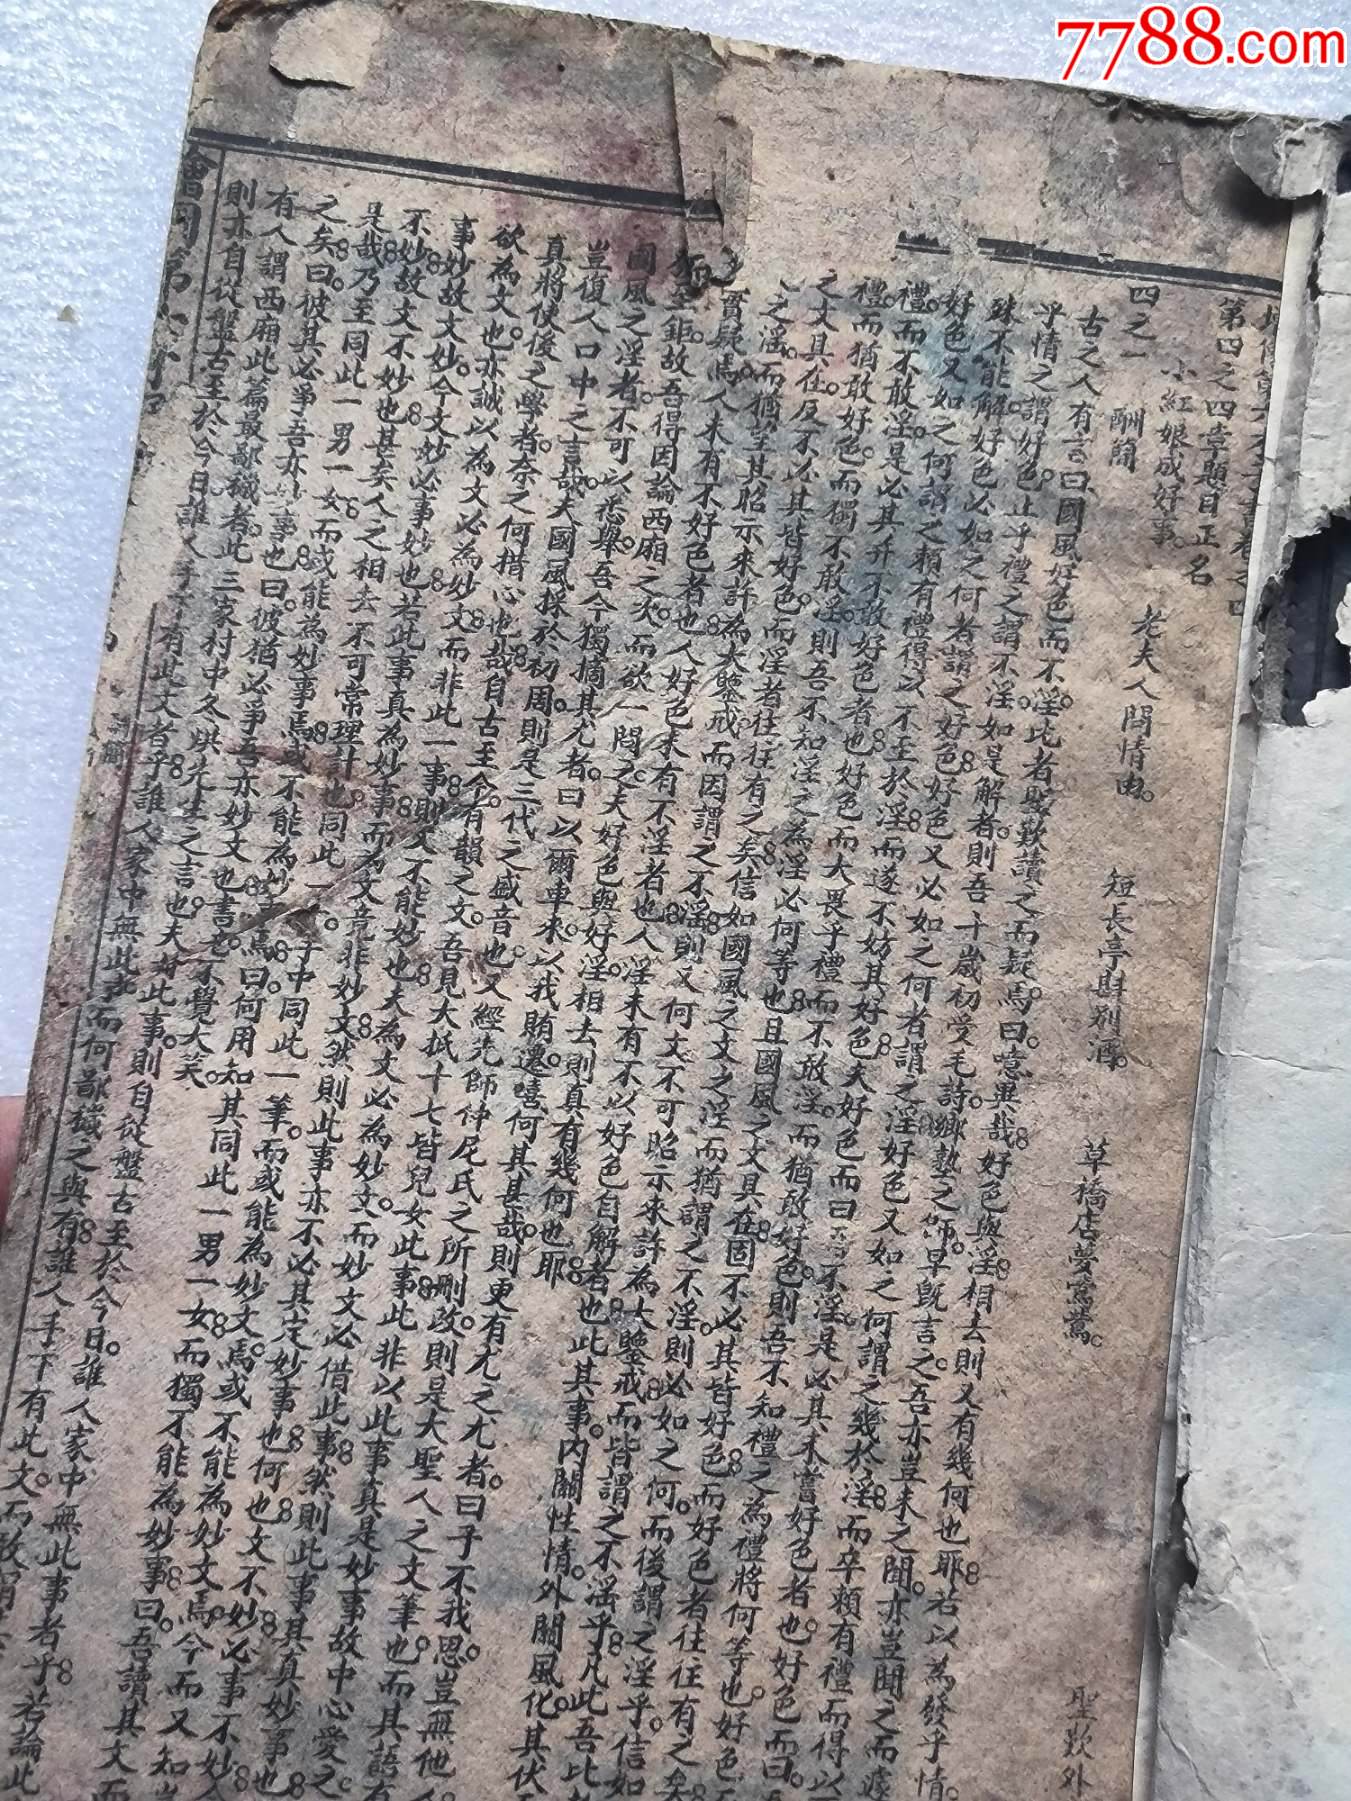 7788.com
書卷之四
第四之四章題目正名
小紅娘成好事。 老夫人問情由。 短長亭斟別酒。 草橋店夢鶯鶯。
四之一 酬簡 聖歎外
古之人有言曰國風好色而不淫。比者聖歎讀之而疑焉。曰噫異哉。好色與淫相去則又有幾何也耶。若以為發乎情。
乎情之謂好色。止乎禮之謂不淫。如是解者。則吾十歲初受毛詩。鄉塾之師早既言之。吾亦豈未之聞。亦豈聞之而遽
殊不能解好色必如之何者謂之好色。好色又必如之何者謂之淫。好色又如之何謂之幾於淫。而卒賴有禮而得以
好色又如之何謂之賴有禮得以不至於淫。而遂不妨其好色。夫好色而曰吾不淫。是必其未嘗好色者也。好色而曰
禮而不敢淫。是必其并不敢好色者也。好色而大畏乎禮而不敢淫。而猶敢好色。則吾不知禮之為禮將何等也。好色
禮而猶敢好色。而獨不敢淫。則吾不知淫之為淫必何等也。且國風之文具在。固不必其皆好色。而好色者往往有之矣
之文具在。反不必其皆好色。而淫者往往有之矣。信如國風之文之淫。而猶謂之不淫。則必如之何。而後謂之淫乎。信如
之淫。而猶望其昭示來許。為大鑒戒。而因謂之不淫。則又何文不可昭示來許。為大鑒戒。而皆謂之不淫乎。凡此吾比
實疑焉。人未有不好色者也。人好色未有不淫者也。人淫未有不以好色自解者也。此其事。內關性情。外關風化。其伏
至鉅。故吾得因論西廂之次。而欲一問之。夫好色與好淫。相去則真有幾何也耶
國風之淫者。不可以悉舉。吾今獨摘其尤者。曰以爾車來。以我賄遷。嘻何其甚哉。則更有尤之尤者。曰子不我思。豈無他
豈復人口中之言哉。夫國風採於初周。則是三代之盛音也。又經先師仲尼氏之所刪改。則是大聖人之文筆也。而其語有
真將使後之學者。奈之何措心也哉。自古至今。有韻之文。吾見大抵十七皆兒女此事。此非以此事真是妙事。故中心愛之
欲為文也。亦誠以為文必為妙文。而非此一事。則文不能妙也。夫為文必為妙文。而妙文必借此事。然則此事其真妙事也
事妙故文妙。今文妙必事妙也。若此事真為妙事。而為文竟非妙文。然則此事亦不必其定妙事也。何也。文不妙必事不妙
不妙故文不妙也。甚矣。人之相去不可常理計也。同此一筆。而或能為妙文焉。或不能為妙文焉。今而又知
是哉。乃至同此一男一女。而或能為妙事焉。或不能為妙事焉。曰何用知其同此一男一女。而獨不能為妙事。曰。吾讀其文而
之矣。曰彼其必爭吾亦妙事也。曰彼猶必爭吾亦妙文也。書老不覺大笑。
有人謂西廂此篇最鄙穢者。此三家村中冬烘先生之言也。夫此事。則自從盤古至於今日。誰人家中無此事者乎。若論此
則亦自從盤古至於今日。誰人手下有此文者乎。誰人家中無此事。而何鄙穢之與有。誰人手下有此文。而敢謂